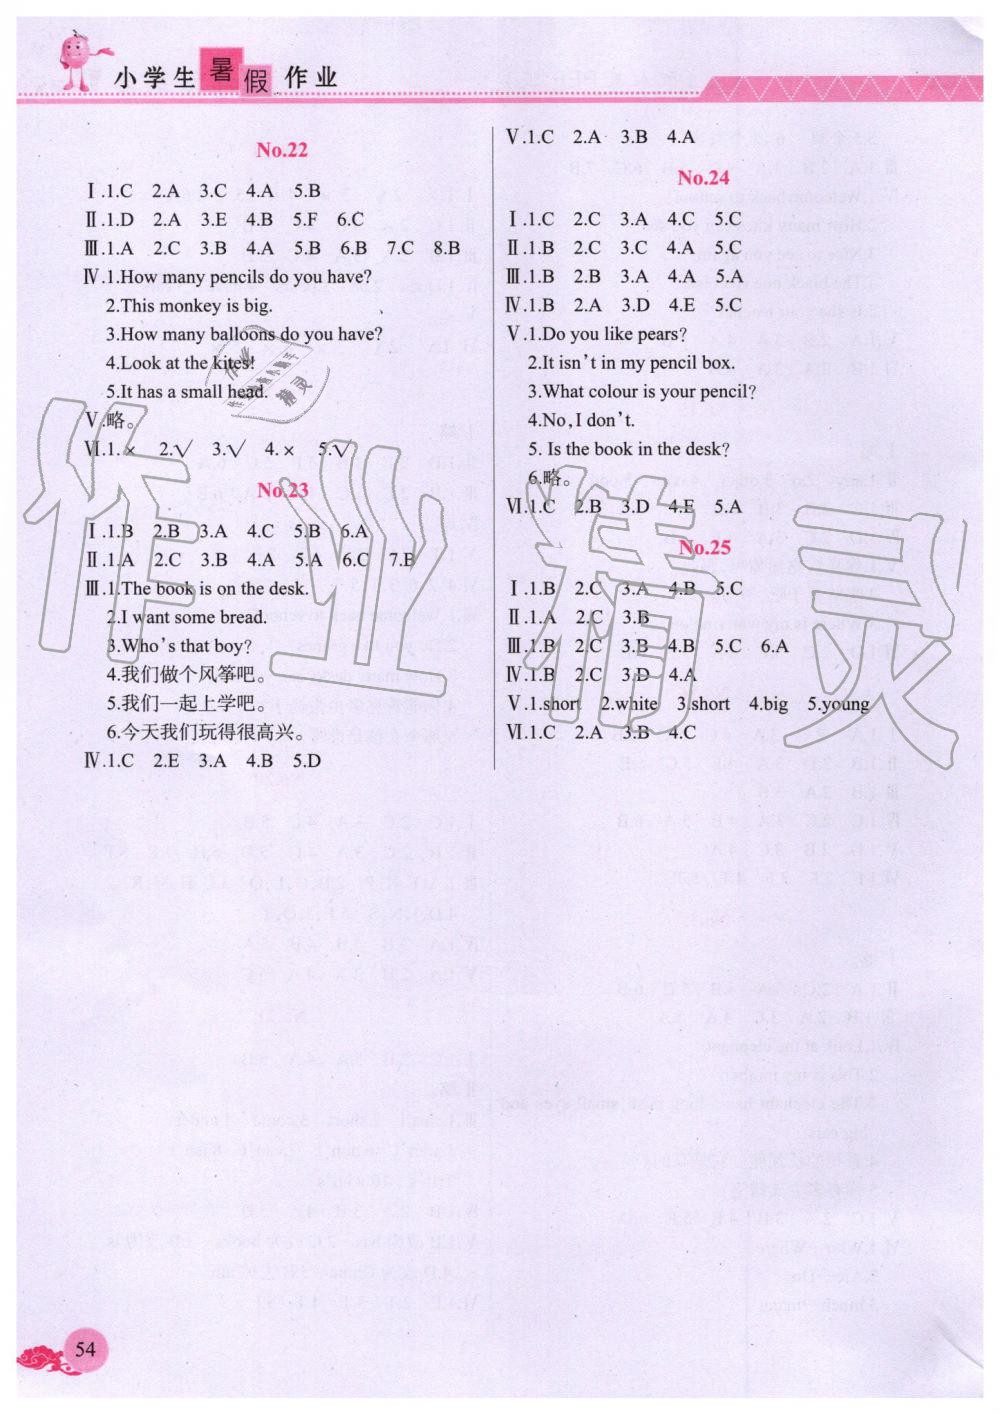 小学生暑假作业
No.22
Ⅰ.1.C 2.A 3.C 4.A 5.B
Ⅱ.1.D 2.A 3.E 4.B 5.F 6.C
Ⅲ.1.A 2.C 3.B 4.A 5.B 6.B 7.C 8.B
Ⅳ.1.How many pencils do you have?
2.This monkey is big.
3.How many balloons do you have?
4.Look at the kites!
5.It has a small head.
Ⅴ.略。
Ⅵ.1.× 2.√ 3.√ 4.× 5.√
No.23
Ⅰ.1.B 2.B 3.A 4.C 5.B 6.A
Ⅱ.1.A 2.C 3.B 4.A 5.A 6.C 7.B
Ⅲ.1.The book is on the desk.
2.I want some bread.
3.Who's that boy?
4.我们做个风筝吧。
5.我们一起上学吧。
6.今天我们玩得很高兴。
Ⅳ.1.C 2.E 3.A 4.B 5.D
Ⅴ.1.C 2.A 3.B 4.A
No.24
Ⅰ.1.C 2.C 3.A 4.C 5.C
Ⅱ.1.B 2.C 3.C 4.A 5.C
Ⅲ.1.B 2.B 3.A 4.A 5.A
Ⅳ.1.B 2.A 3.D 4.E 5.C
Ⅴ.1.Do you like pears?
2.It isn't in my pencil box.
3.What colour is your pencil?
4.No,I don't.
5. Is the book in the desk?
6.略。
Ⅵ.1.C 2.B 3.D 4.E 5.A
No.25
Ⅰ.1.B 2.C 3.A 4.B 5.C
Ⅱ.1.A 2.C 3.B
Ⅲ.1.B 2.C 3.B 4.B 5.C 6.A
Ⅳ.1.B 2.C 3.D 4.A
Ⅴ.1.short 2.white 3.short 4.big 5.young
Ⅵ.1.C 2.A 3.B 4.C
作业精灵
54